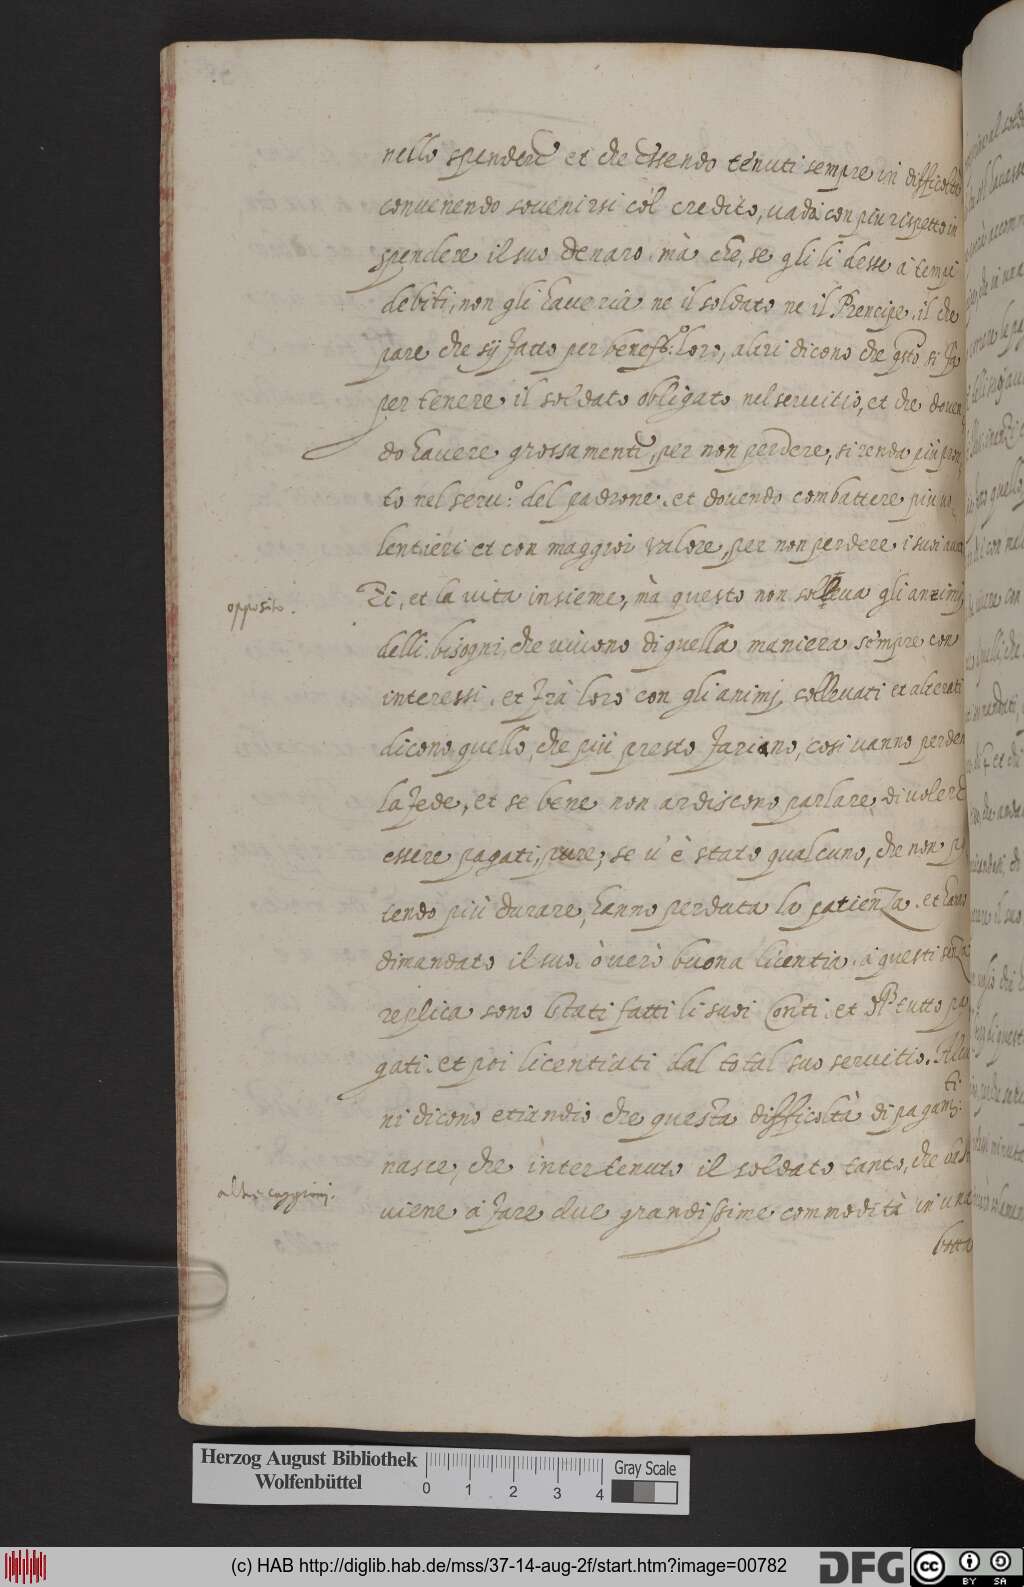 nello spendere et che essendo tenuti sempre in difficoltà
convenendo sovenirsi col credito, vada con piu rispetto in
spendere il suo denaro. mà che, se gli li desse à tempi
debiti, non gli haveria ne il soldato ne il Prencipe. il che
pare che sij fatto per benefᵒ: loro, altri dicono che qsto si fà
per tenere il soldato obligato nel servitio, et che doven
do havere grossamente, per non perdere, si renda più pron
to nel serv:ᵒ del padrone. et dovendo combattere più vo
lentieri et con maggior valore, per non perdere i suoi avan
zi, et la vita insieme, mà questo non solleva gli animi
opposito.
delli bisogni, che vivono di quella maniera sempre con
interessi. et frà loro con gli animj sollevati et alterati
dicono quello, che più presto fariano, cosi vanno perden
la fede, et se bene non ardiscono parlare, di volere
essere pagati, pure, se v' è stato qualcuno, che non po
tendo più durare, hanno perduta la patienza. et hanno
dimandato il suo. ò verò buona licentia. à questi senza
replica sono stati fatti li suoi Conti. et di tutto pa
gati. et poi licentiati dal total suo servitio. Alcu
ni dicono etiandio che questa difficoltà di pagamti.
nasce, che intertenuto il soldato tanto, che
altre caggioni.
viene à fare due grandissime commodità in una
botta
Herzog August Bibliothek
Wolfenbüttel
0 1 2 3 4
Gray Scale
(c) HAB http://diglib.hab.de/mss/37-14-aug-2f/start.htm?image=00782
DFG
cc BY SA